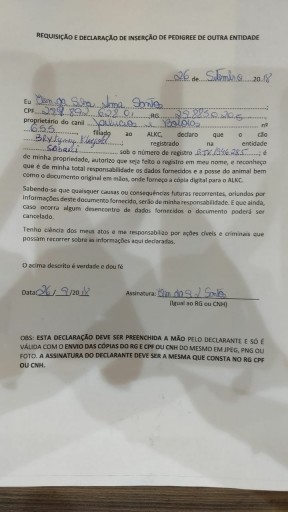 REQUISIÇÃO E DECLARAÇÃO DE INSERÇÃO DE PEDIGREE DE OUTRA ENTIDADE
26 de Setembro 2018
Eu da Silva Santos
CPF RG
proprietário do canil e nº
655 filiado ao ALKC, declaro que o cão
registrado na entidade
Sobraci sob o número de registro é
de minha propriedade, autorizo que seja feito o registro em meu nome, e reconheço
que é de minha total responsabilidade os dados fornecidos e a posse do animal bem
como o documento original em mãos, onde forneço a cópia digital para o ALKC.
Sabendo-se que quaisquer causas ou consequências futuras recorrentes, oriundos por
informações deste documento fornecido, serão de minha responsabilidade. E que ainda,
caso ocorra algum desencontro de dados fornecidos o documento poderá ser
cancelado.
Tenho ciência dos meus atos e me responsabilizo por ações cíveis e criminais que
possam recorrer sobre as informações aqui declaradas.
O acima descrito é verdade e dou fé
Data: 26/9/2018 Assinatura:
(Igual ao RG ou CNH)
OBS: ESTA DECLARAÇÃO DEVE SER PREENCHIDA A MÃO PELO DECLARANTE E SÓ É
VÁLIDA COM O ENVIO DAS CÓPIAS DO RG E CPF OU CNH DO MESMO EM JPEG, PNG OU
FOTO. A ASSINATURA DO DECLARANTE DEVE SER A MESMA QUE CONSTA NO RG CPF
OU CNH.